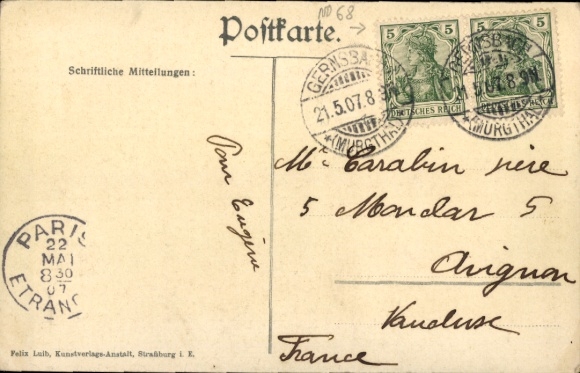 nº 68
Postkarte.
Schriftliche Mitteilungen:
5 5
DEUTSCHES REICH
5 5
DEUTSCHES REICH
GERNSBACH
21.5.07.8-9N
*(MURGTHAL)
GERNSBACH
21.5.07.8-9N
*(MURGTHAL)
Pour Eugène
Mr Carabin père
5 Mondar 5
Avignon
Vaucluse
France
PARIS
22
MAI
8 30
07
ETRANG
Felix Luib, Kunstverlags-Anstalt, Straßburg i. E.